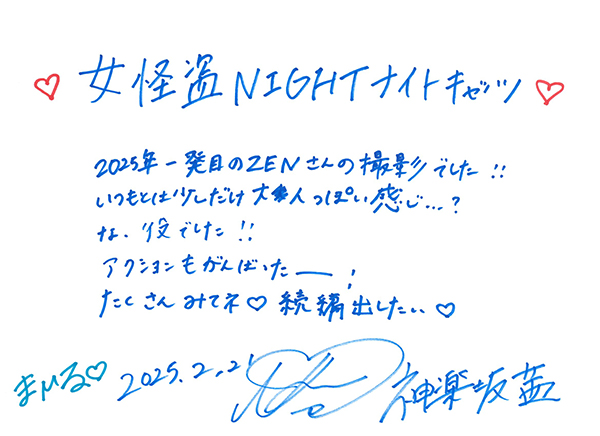 ♡ 女怪盗NIGHTナイトキャッツ ♡
2025年一発目のZENさんの撮影でした!!
いつもとは少しだけ大人っぽい感じ…?
な、役でした!!
アクションもがんばったー!
たくさんみてネ♡ 続編出したい♡
まひる♡ 2025.2.21 神楽坂茜